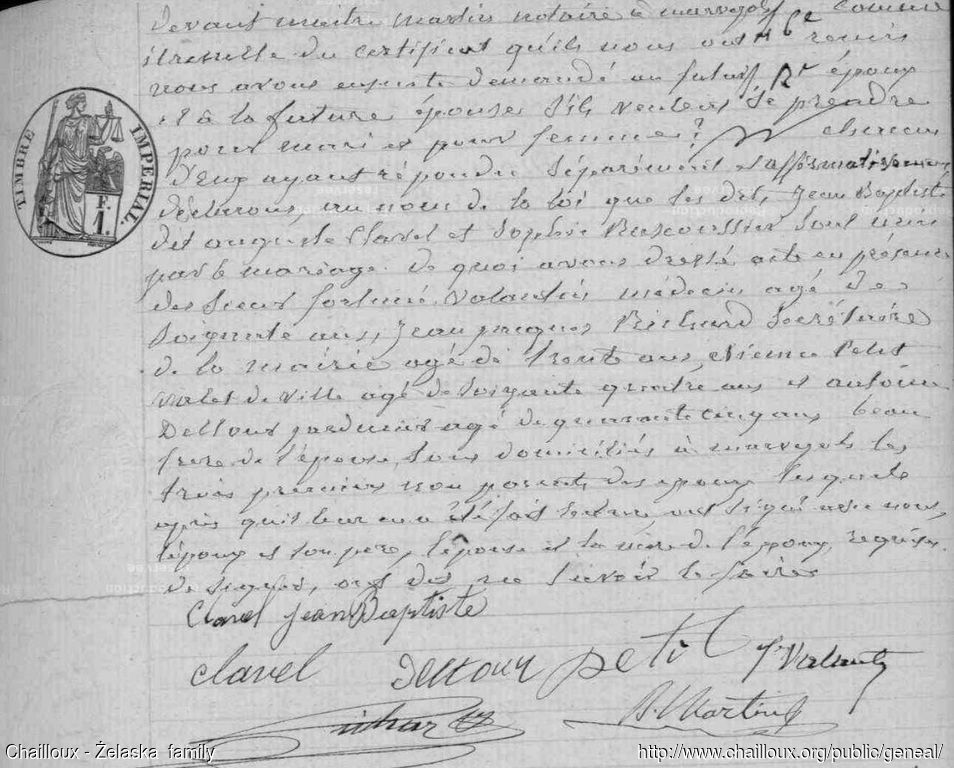 devant maitre martin notaire à marvejols comme
il resulte du certificat qu'ils nous ont remis
nous avons ensuite demandé au futur époux
et à la future épouse s'ils veulent se prendre
pour mari et pour femme? chacun
d'eux ayant répondu séparément et affirmativement
déclarons au nom de la loi que les dits Jean Baptiste
dit auguste Clavel et Sophie sont unis
par le mariage. de quoi avons dressé acte en présence
des sieurs fortuné Valantin médecin agé de
soixante ans, Jean jacques Richard Secrétaire
de la mairie agé de trente ans, etienne Petit
valet de ville agé de soixante quatre ans et antoine
Deltour jardinier agé de quarante cinq ans, beau
frere de l'épouse, tous domiciliés à marvejols les
trois premiers non parents des epoux lesquels
après qu'il leur en a été fait lecture ont signé avec nous,
l'époux et son pere, l'épouse et la mère de l'époux, requises
de signer, ont dit ne savoir le faire
Clavel jean Baptiste
clavel Deltour petit f Valantin
Richard Martin
TIMBRE IMPERIAL.
1 F.
Chailloux - Želaska family
http://www.chailloux.org/public/geneal/